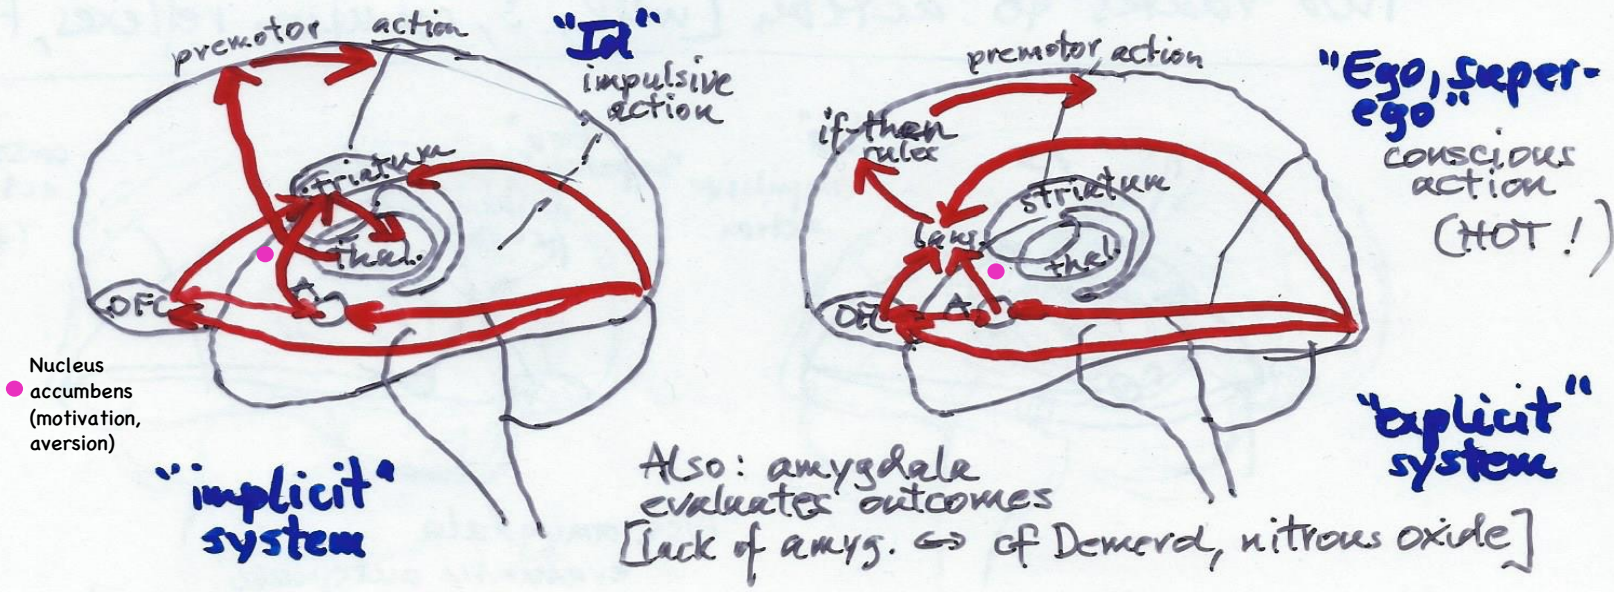 premotor action
"Id"
impulsive
action
striatum
thal.
OFC
A
Nucleus
accumbens
(motivation,
aversion)
"implicit"
system
premotor action
"Ego, super-
ego"
if-then
rules
conscious
action
(HOT!)
striatum
lang.
thal.
OFC
A
"explicit"
system
Also: amygdala
evaluates outcomes
[lack of amyg. ⇔ cf Demerol, nitrous oxide]